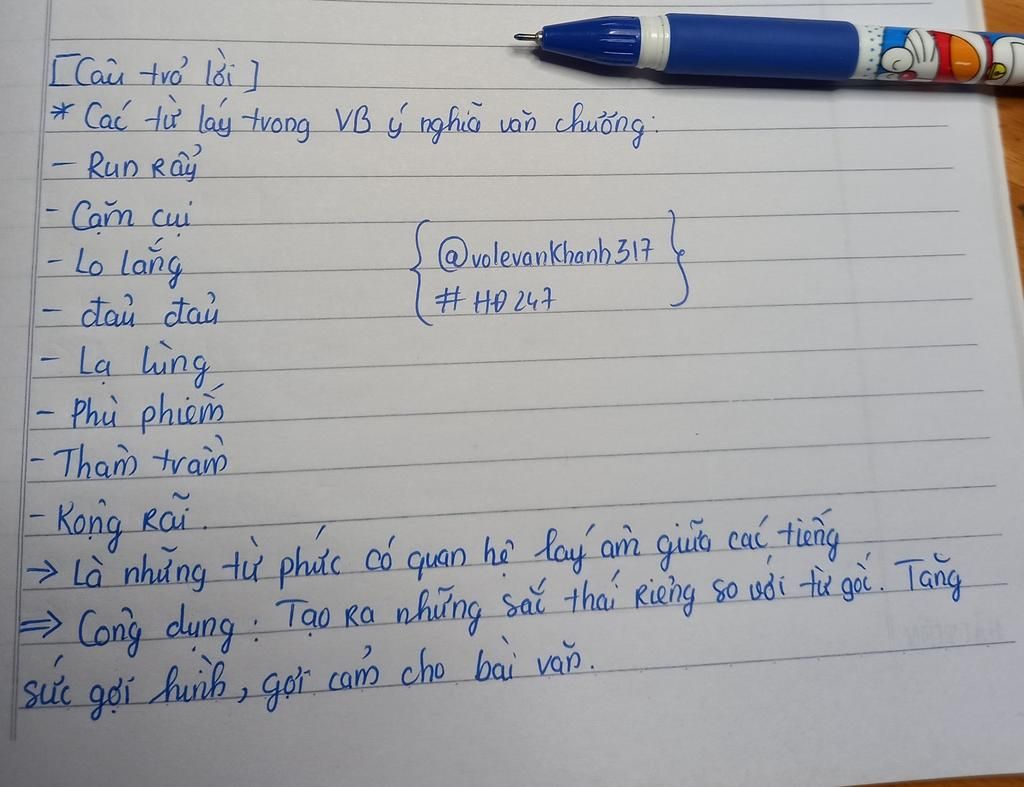 [Câu trả lời]
* Các từ láy trong VB ý nghĩa văn chương:
- Run Rẩy
- Cặm cụi
- Lo lắng
- đau đáu
- Lạ lùng
- Phù phiếm
- Thầm trầm
- Rộng Rãi.
{ @volevankhanh317
# HĐ247 }
→ Là những từ phức có quan hệ láy âm giữa các tiếng
⇒ Công dụng: Tạo Ra những sắc thái Riêng so với từ gốc. Tăng
sức gợi hình, gợi cảm cho bài văn.